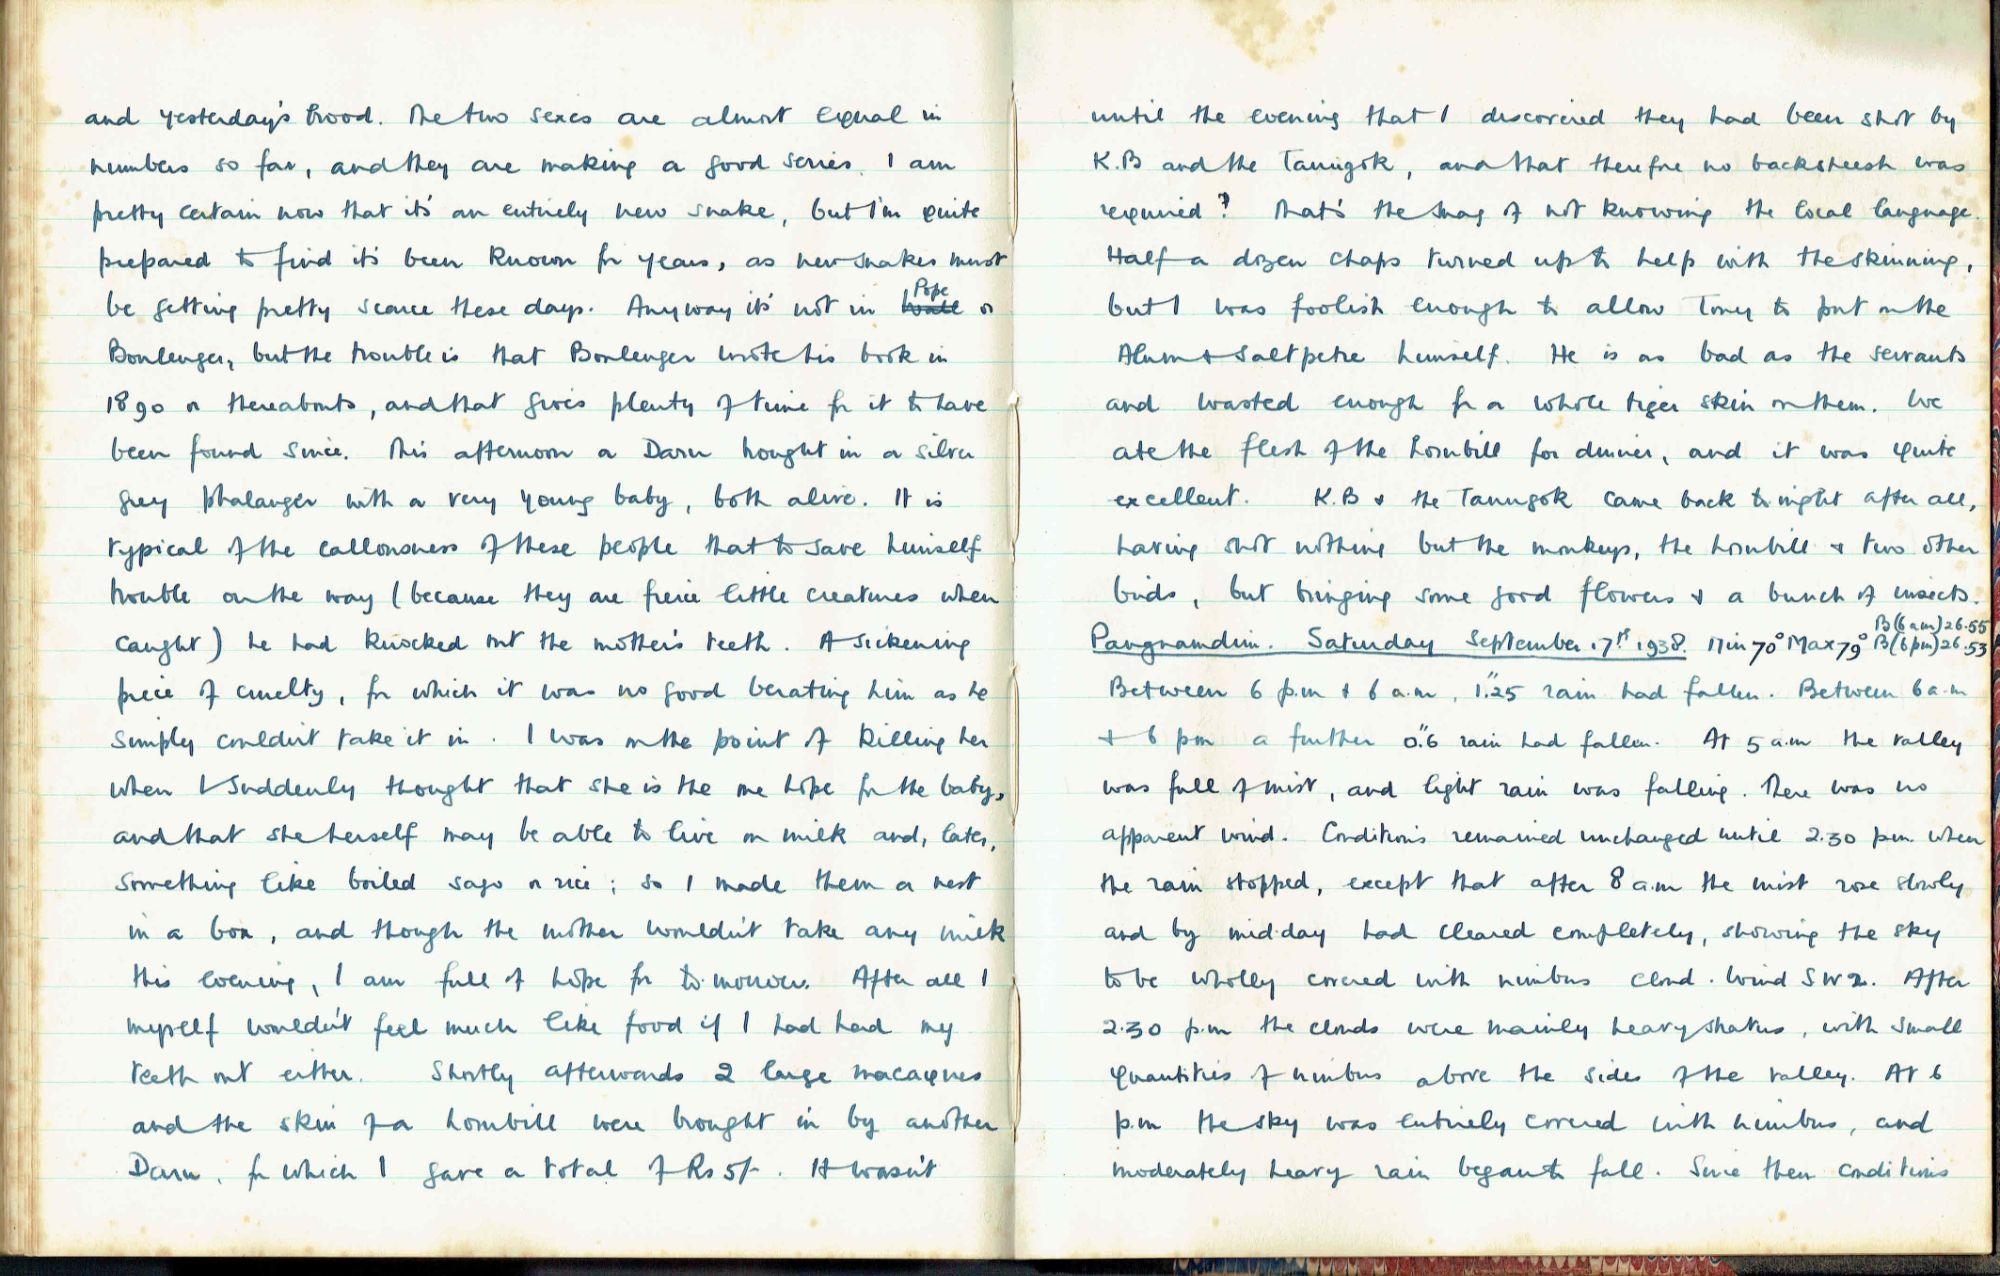 and yesterday's brood. The two sexes are almost equal in
numbers so far, and they are making a good series. I am
pretty certain now that it's an entirely new snake, but I'm quite
prepared to find it's been known for years, as new snakes must
be getting pretty scarce these days. Anyway it's not in Pope or
Boulenger, but the trouble is that Boulenger wrote his book in
1890 or thereabouts, and that gives plenty of time for it to have
been found since. This afternoon a Daru brought in a silver
grey phalanger with a very young baby, both alive. It is
typical of the callousness of these people that to save himself
trouble on the way (because they are fierce little creatures when
caught) he had knocked out the mother's teeth. A sickening
piece of cruelty, for which it was no good berating him as he
simply couldn't take it in. I was on the point of killing her
when I suddenly thought that she is the one hope for the baby,
and that she herself may be able to live on milk and, later,
something like boiled sago or rice; so I made them a nest
in a box, and though the mother wouldn't take any milk
this evening, I am full of hope for to-morrow. After all I
myself wouldn't feel much like food if I had had my
teeth out either. Shortly afterwards 2 large macaques
and the skin of a hornbill were brought in by another
Daru, for which I gave a total of Rs 5/-. It wasn't
until the evening that I discovered they had been shot by
K.B and the Tamugok, and that therefore no backsheesh was
required? That's the snag of not knowing the local language.
Half a dozen chaps turned up to help with the skinning,
but I was foolish enough to allow Tony to put on the
Alum & Saltpetre himself. He is as bad as the servants
and wasted enough for a whole tiger skin on them. We
ate the flesh of the hornbill for dinner, and it was quite
excellent. K.B & the Tamugok came back to night after all,
having shot nothing but the monkeys, the hornbill & two other
birds, but bringing some good flowers & a bunch of insects.
Pangnamdim. Saturday September 17th 1938. Min 70° Max 79° B(6am)26.55 B(6pm)26.53
Between 6 p.m & 6 a.m, 1."25 rain had fallen. Between 6 a.m
& 6 pm a further 0."6 rain had fallen. At 5 a.m the valley
was full of mist, and light rain was falling. There was no
apparent wind. Conditions remained unchanged until 2.30 p.m. when
the rain stopped, except that after 8 a.m the mist rose slowly
and by mid-day had cleared completely, showing the sky
to be wholly covered with nimbus cloud. Wind SW 2. After
2.30 p.m the clouds were mainly heavy stratus, with small
quantities of nimbus above the sides of the valley. At 6
p.m the sky was entirely covered with nimbus, and
moderately heavy rain began to fall. Since then conditions